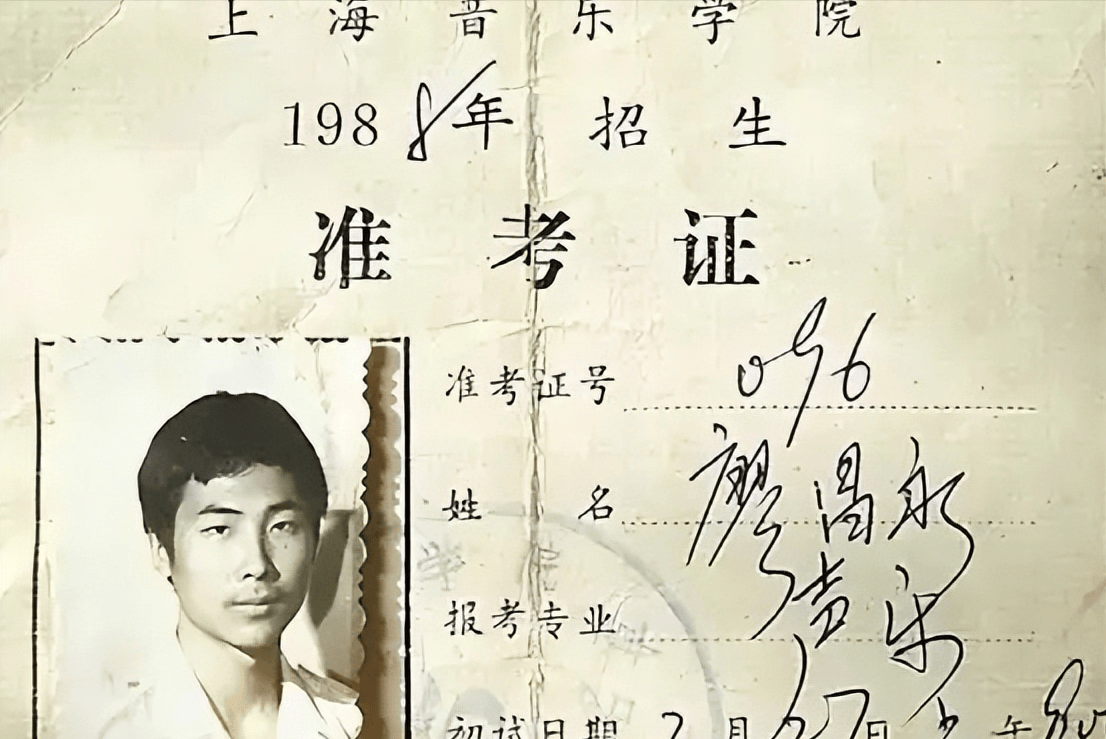 上海音乐学院
1988年招生
准考证
准考证号 096
姓名 廖昌永
报考专业 声乐
初试日期 2月27日 午